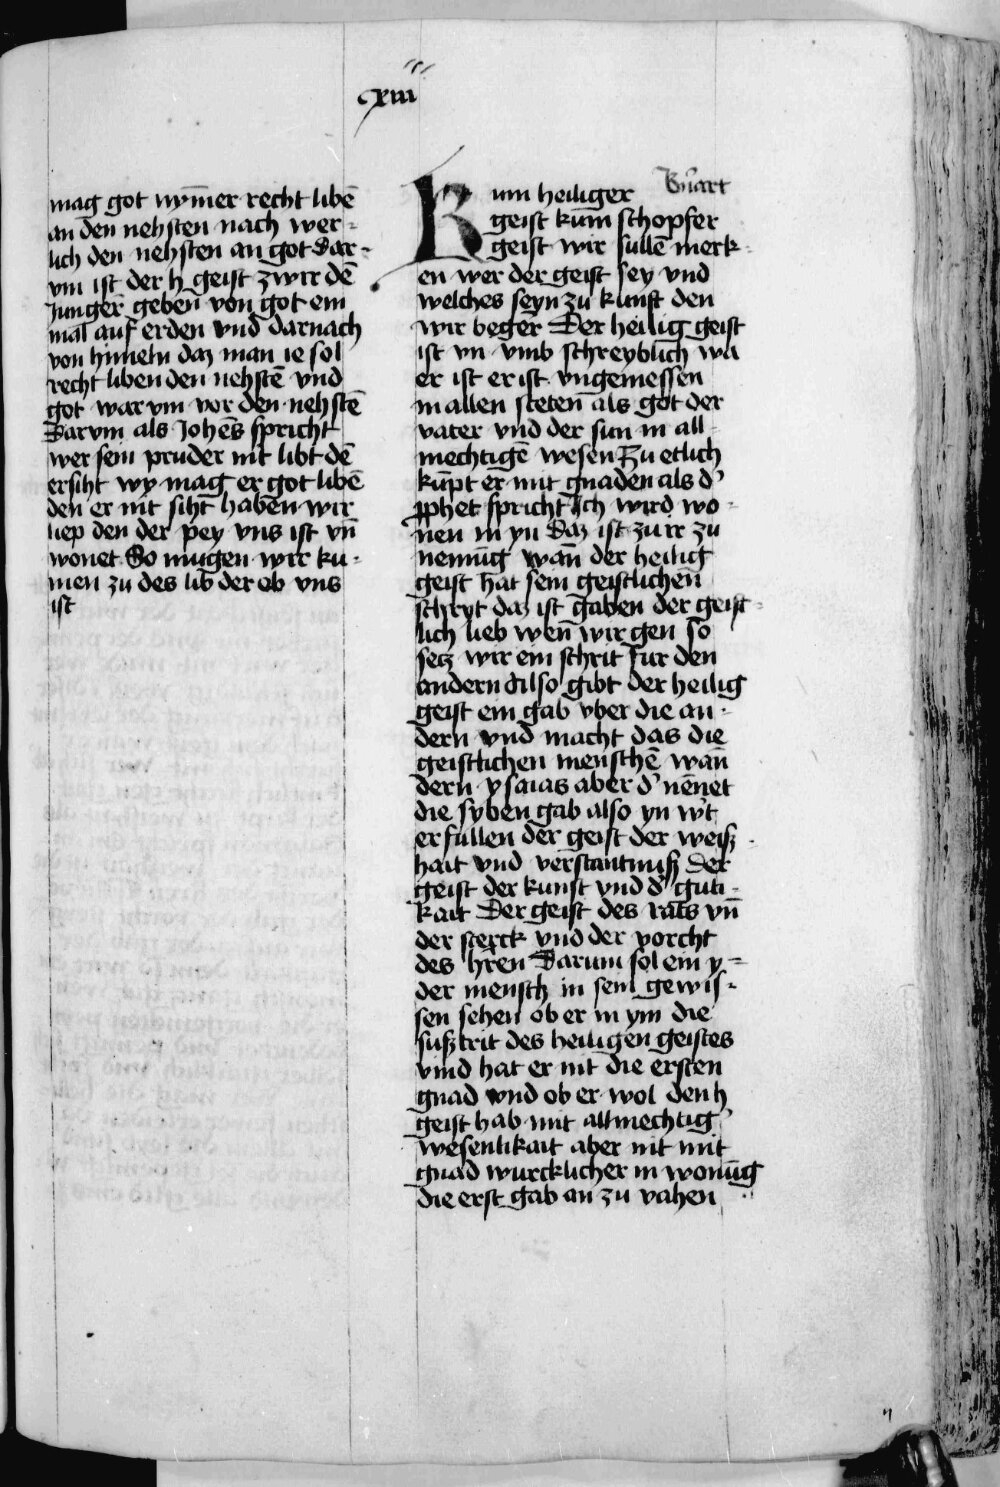 xiii
mag got nym̄er recht libē
an den nehsten nach wer-
lich den nehsten an got Dar-
vm ist der h geist zwir dē
Jungerē geben von got ein
mal auf erden vnd darnach
von himeln daz man ie sol
recht liben den nehstē vnd
got warvm vor den nehstē
Darvm als Johēs spricht
wer sein pruder nit libt dē
er siht wy mag er got libē
den er nit siht haben wir
liep den der pey vns ist vn̄
wonet So mugen wir ku-
men zu des lib der ob vns
ist
Kum heiliger
geist kum schopfer
geist wir sullē merk-
en wer der geist sey vnd
welches seyn zu kunft den
wir beger Der heilig geist
ist vn vmb schreyblich wa
er ist er ist vngemessen
in allen stetē als got der
vater vnd der sun in all-
mechtigē wesen Zu etlich
kūpt er mit gnaden als d'
ꝓphet spricht Ich wird wo-
nen in yn Daz ist zu ir zu
nemūg wan̄ der heilig
geist hat sein geistlichen
schryt daz ist gaben der geist-
lich lieb wen̄ wir gen so
setz wir ein schrit fur den
andern Also gibt der heilig
geist ein gab vber die an-
dern vnd macht das die
geistlichen menschē wan̄
dern ysaias aber d' nēnet
die syben gab also yn w't
erfullen der geist der weisz-
hait vnd verstantnusz Der
geist der kunst vnd d' guti-
kait Der geist des rats vn̄
der sterck vnd der vorcht
des hren Darum sol ein y-
der mensch in sein gewis-
sen sehen ob er in ym die
fusztrit des heiligen geistes
vind hat er nit die ersten
gnad vnd ob er wol den h
geist hab mit allmechtig'
wesenlikait aber nit mit
gnad wurcklicher in wonūg
die erst gab an zu vahen